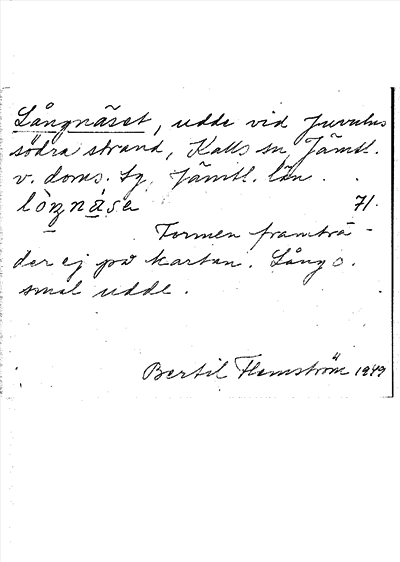 Långnäset, udde vid Juvulns
södra strand, Kalls sn, Jämtl.
v. doms. tg. Jämtl. län.
lòŋnä́se 71.
Formen framträ-
der ej på kartan. Lång o.
smal udde.
Bertil Flemström 1949